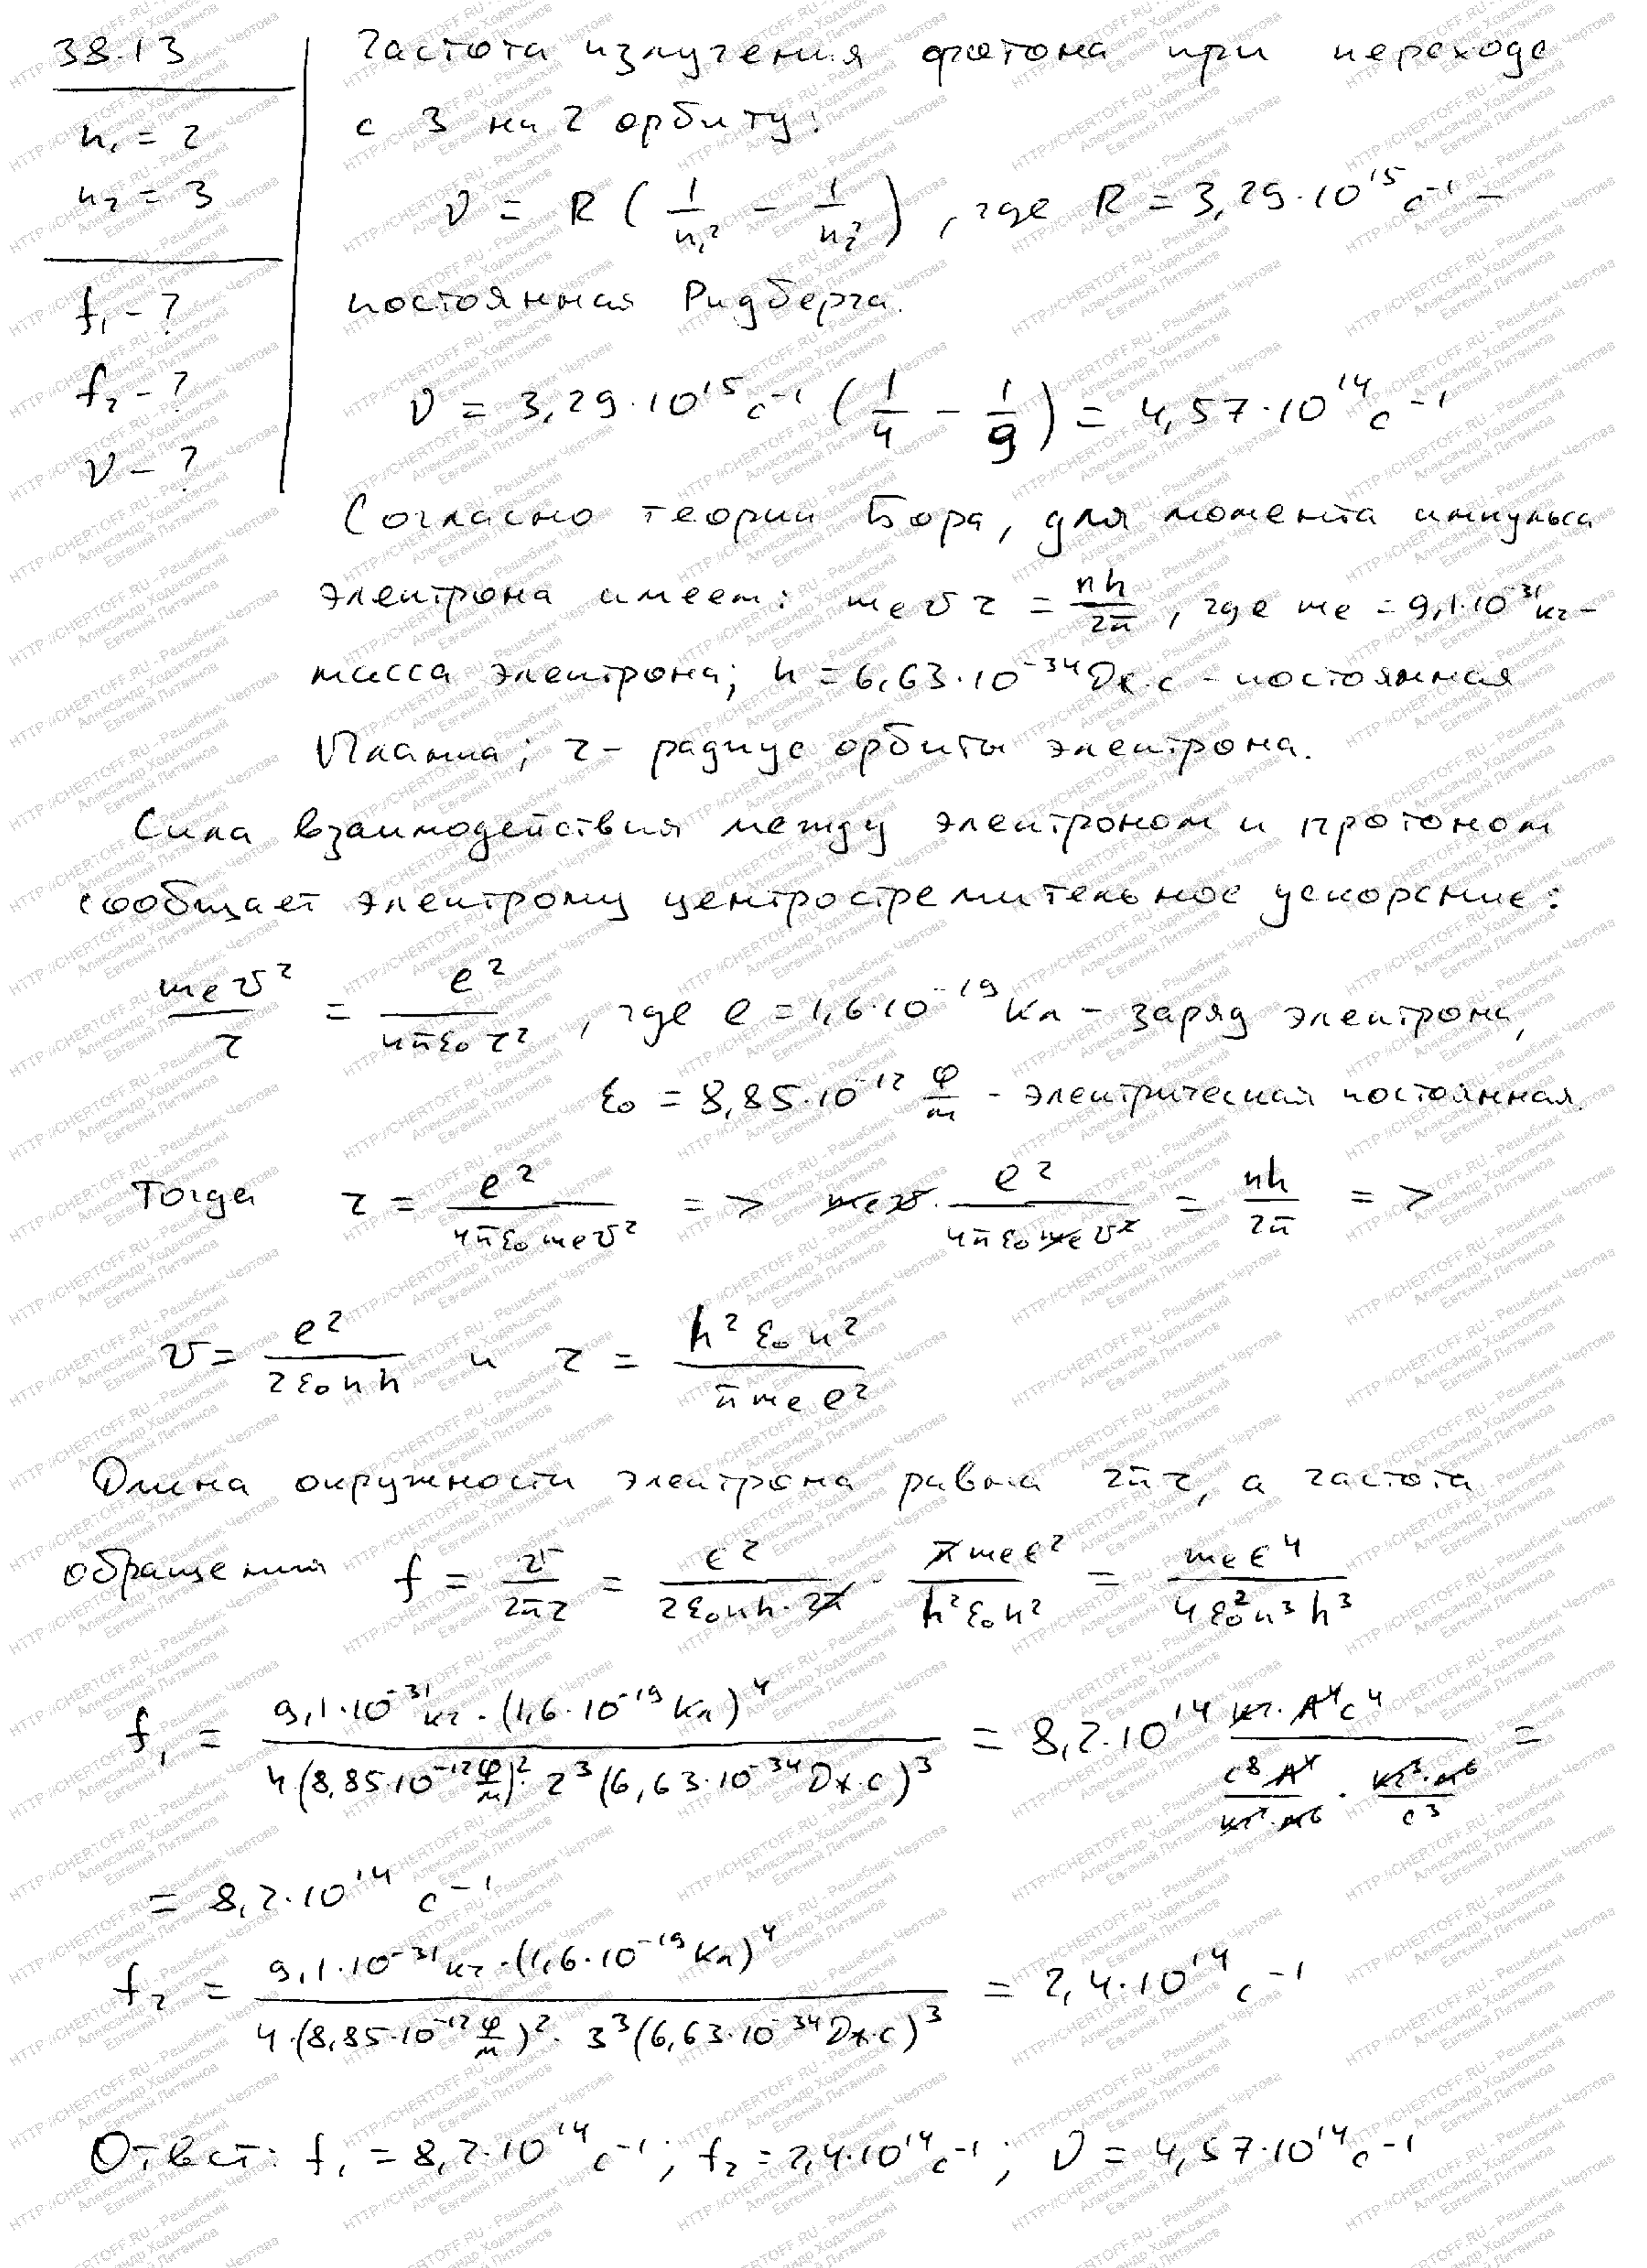 38.13
n₁ = 2
n₂ = 3
f₁ - ?
f₂ - ?
ν - ?
Частота излучения фотона при переходе
с 3 на 2 орбиту:
ν = R (1/n₁² - 1/n₂²), где R = 3,29·10¹⁵ с⁻¹ -
постоянная Ридберга.
ν = 3,29·10¹⁵ с⁻¹ (1/4 - 1/9) = 4,57·10¹⁴ с⁻¹
Согласно теории Бора, для момента импульса
электрона имеем: mₑ v r = nh/2π, где mₑ = 9,1·10⁻³¹ кг -
масса электрона; h = 6,63·10⁻³⁴ Дж·с - постоянная
Планка; r - радиус орбиты электрона.
Сила взаимодействия между электроном и протоном
сообщает электрону центростремительное ускорение:
mₑv²/r = e²/4πε₀r², где e = 1,6·10⁻¹⁹ Кл - заряд электрона,
ε₀ = 8,85·10⁻¹² Ф/м - электрическая постоянная.
Тогда r = e²/4πε₀mₑv² => mₑv · e²/4πε₀mₑv² = nh/2π =>
v = e²/2ε₀nh и r = h²ε₀n²/πmₑe²
Длина окружности электрона равна 2πr, а частота
обращения f = v/2πr = e²/2ε₀nh·2π · πmₑe²/h²ε₀n² = mₑe⁴/4ε₀²n³h³
f₁ = 9,1·10⁻³¹ кг·(1,6·10⁻¹⁹ Кл)⁴ / 4(8,85·10⁻¹² Ф/м)²·2³(6,63·10⁻³⁴ Дж·с)³ = 8,2·10¹⁴ кг·А⁴с⁴ / (с⁸А⁴/кг²·м⁶ · кг³·м⁶/с³) =
= 8,2·10¹⁴ с⁻¹
f₂ = 9,1·10⁻³¹ кг·(1,6·10⁻¹⁹ Кл)⁴ / 4·(8,85·10⁻¹² Ф/м)²·3³(6,63·10⁻³⁴ Дж·с)³ = 2,4·10¹⁴ с⁻¹
Ответ: f₁ = 8,2·10¹⁴ с⁻¹; f₂ = 2,4·10¹⁴ с⁻¹; ν = 4,57·10¹⁴ с⁻¹
HTTP://CHERTOFF.RU - Решебник Чертова
Александр Ходаковский
Евгений Литвинов